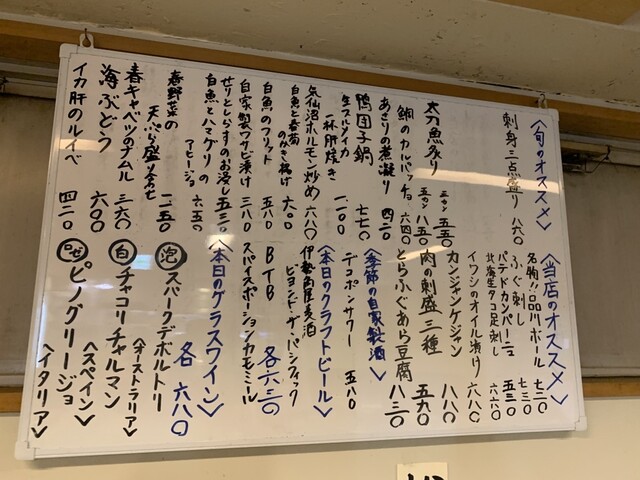 〈旬のオススメ〉
刺身三点盛り 八六〇
太刀魚炙り
三カン 五五〇
五カン 八五〇
鯛のカルパッチョ 六四〇
あさりの煮凝り 四二〇
鴨団子鍋 七七〇
生スルメイカ
一杯肝焼き 一、一〇〇
白魚と春菊
のかき揚げ 六〇〇
気仙沼ホルモン炒め 六八〇
白魚のフリット 五八〇
自家製ワサビ漬け 三八〇
せりとしらすのお浸し 五三〇
白魚とハマグリの
アヒージョ 六五〇
春野菜の
天ぷら盛り合せ 一、二五〇
春キャベツのナムル 三六〇
海ぶどう 六〇〇
イカ肝のルイベ 四二〇
〈当店のオススメ〉
名物!!品川ボール 七二〇
ふぐ刺し 七三〇
パテドカンパーニュ 五三〇
北海生タコ足刺し 六六〇
イワシのオイル漬け 六八〇
カンジャンケジャン 八八〇
肉の刺盛三種 五九〇
とらふぐあら豆腐 八三〇
〈季節の自家製酒〉
デコポンサワー 五八〇
〈本日のクラフトビール〉
伊勢角屋麦酒
ビヨンド・ザ・パシフィック
各六三〇
BTB
スパイスポーションカモミール
〈本日のグラスワイン〉
各 六八〇
泡 スパークデボルトリ
〈オーストラリア〉
白 チャコリチャルマン
〈スペイン〉
ロゼ ピノグリージョ
〈イタリア〉